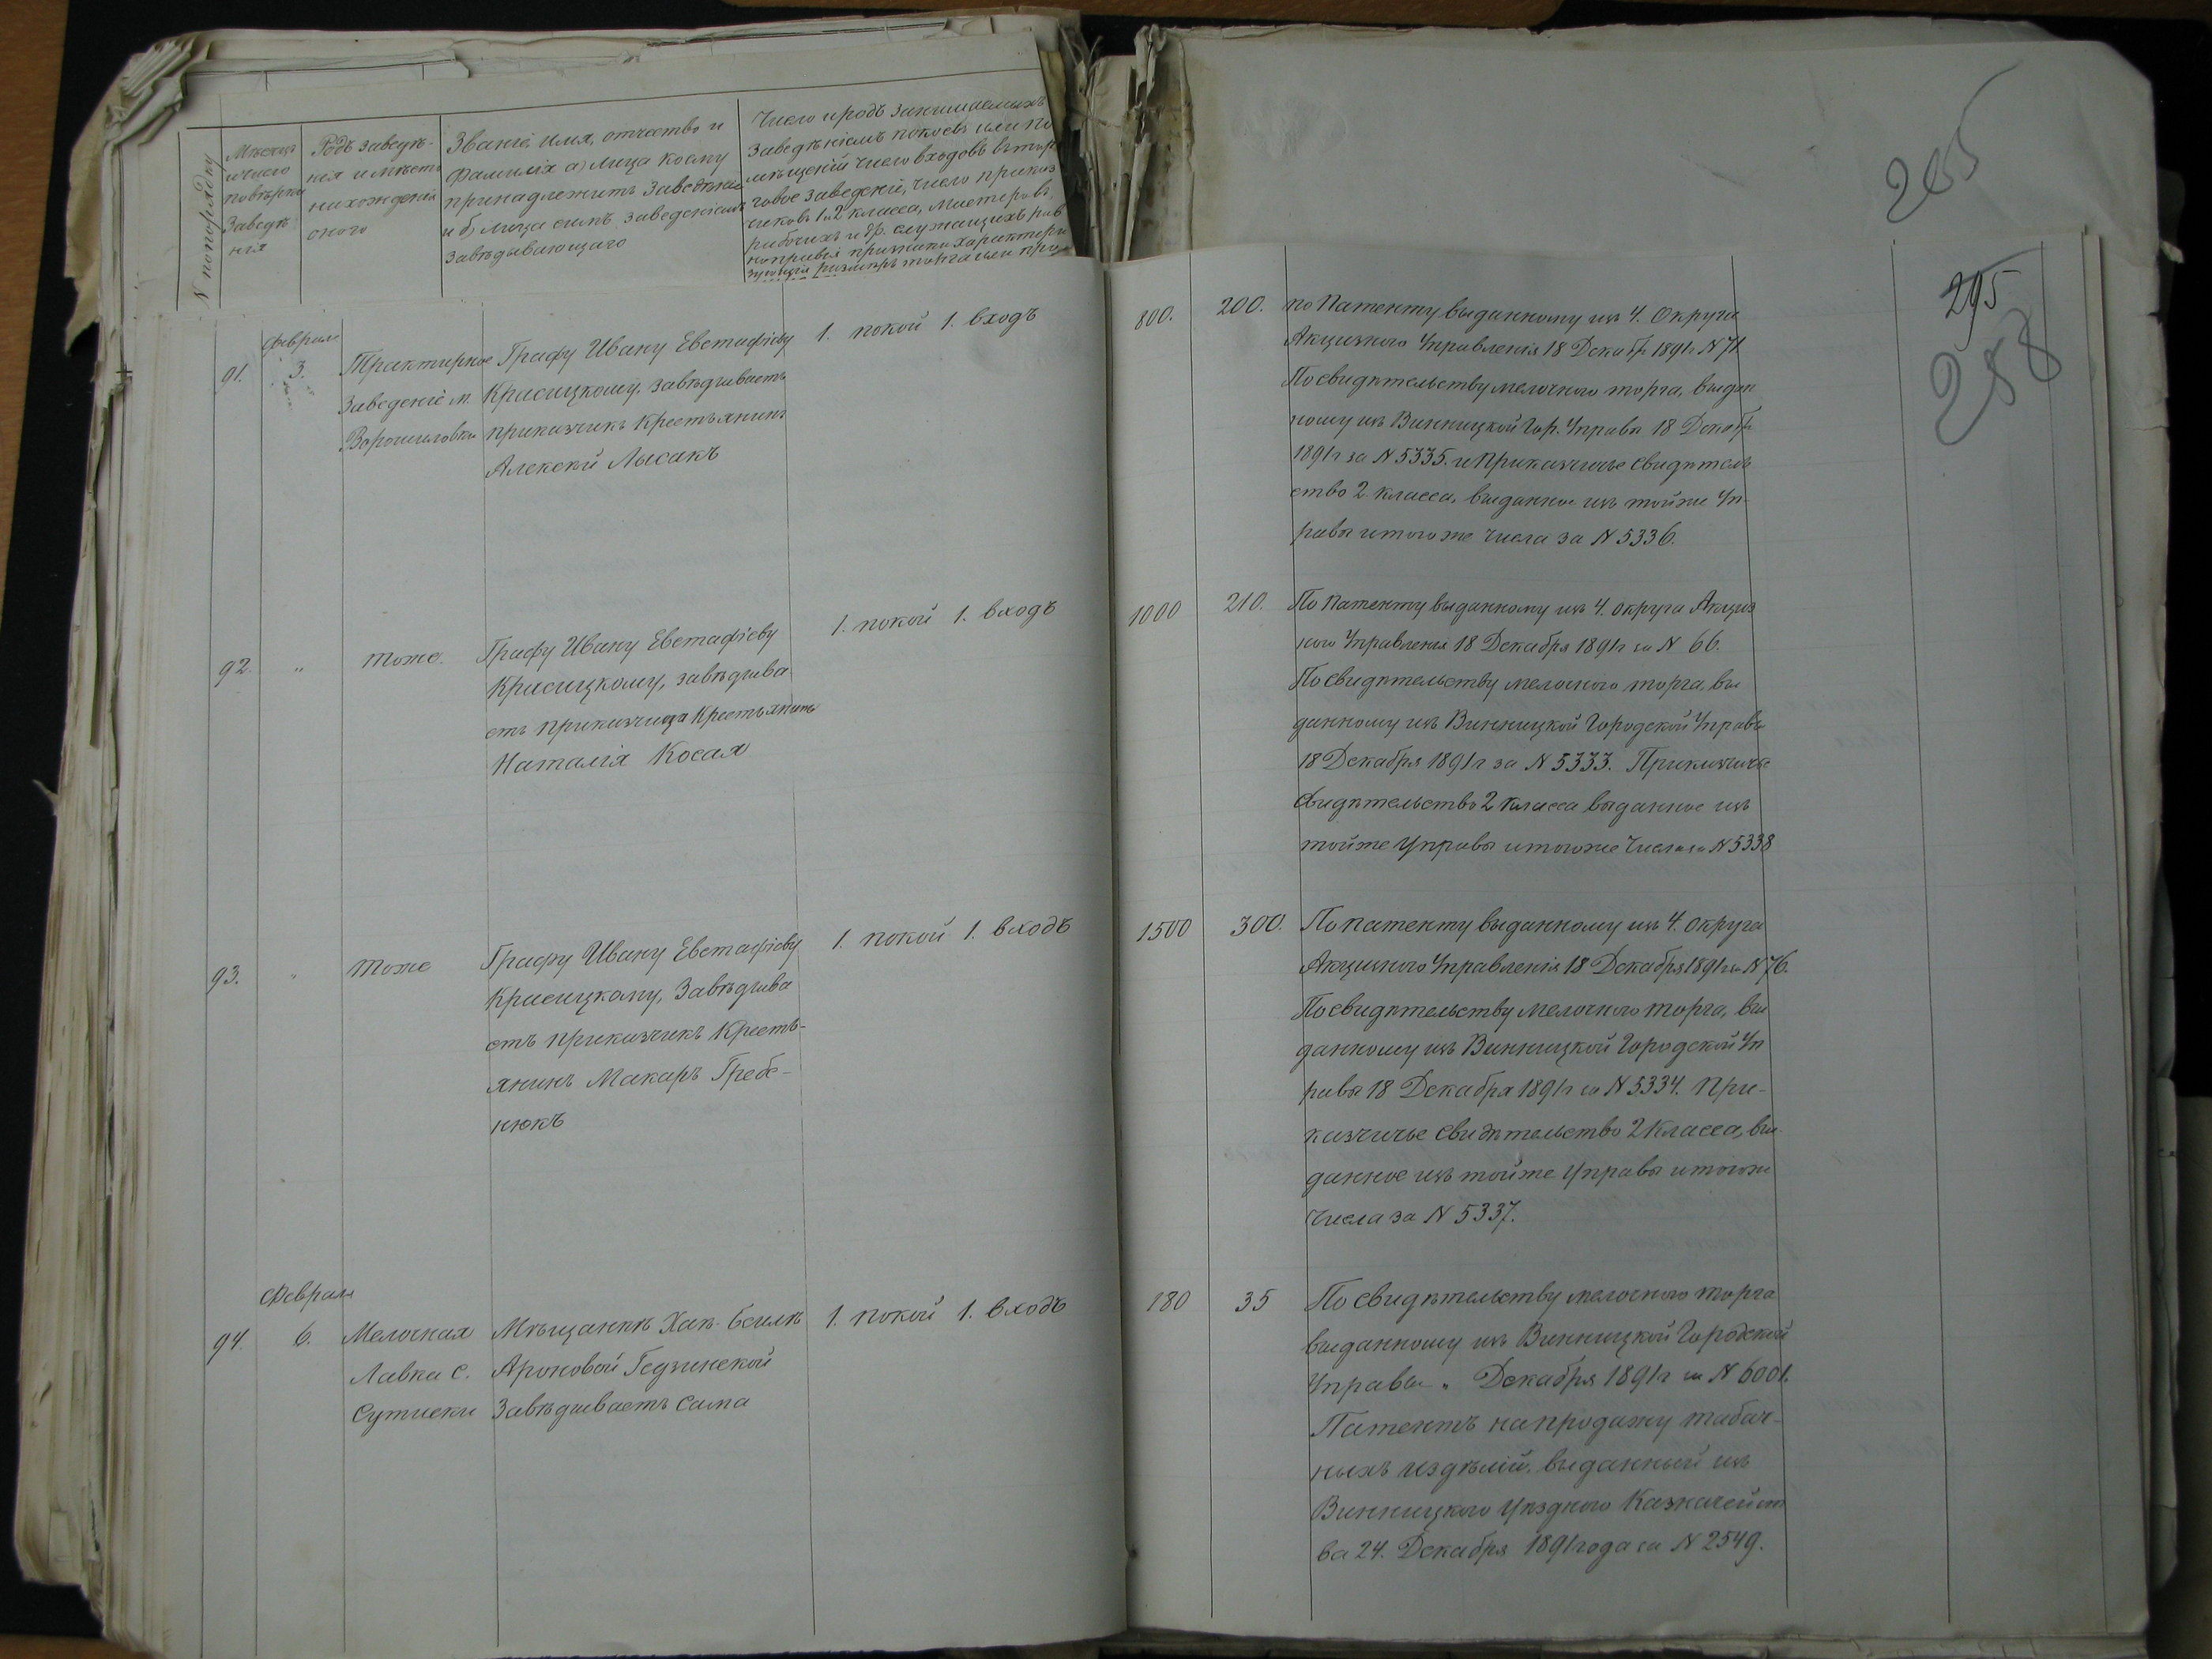 N попорядку
Мѣсяцъ
и число
повѣрки
Заведѣ
нія
Родъ заведѣ-
нія и мѣсто
нахожденія
оного
Званіе, имя, отчество и
фамилія а) лица коему
принадлежитъ Заведѣніе
и б) лица симъ заведеніемъ
завѣдывающаго
Число и родъ занимаемыхъ
Заведѣніемъ покоевъ или по
мѣщеній число входовъ въ тор
говое заведеніе, число приказ
чиковъ 1 и 2 класса, мастеровъ,
рабочихъ и др. служащихъ рав
но прочія признаки характери
зующія размѣръ торга или пр
265
295
258
Февраля
91. 3. Трактирное
Заведеніе м.
Ворошиловка
Графу Ивану Евстафіеву
Красицкому, завѣдуваетъ
приказчикъ Крестьянинъ
Алексѣй Лысакъ
1. покой 1. входъ
800. 200.
по Патенту выданному изъ 4. Округа
Акцизного Управленія 18 Декабр 1891г N 71
По свидѣтельству мелочного торга, выдан
ному изъ Винницкой Гор. Управы 18 Декабр
1891г за N 5335. и Приказчичье свидѣтель
ство 2. класса, выданное изъ тойже Уп-
равы и тогоже числа за N 5336.
92. „ тоже.
Графу Ивану Евстафіеву
Красицкому, завѣдува
етъ приказчица Крестьянинъ
Наталія Косая
1. покой 1. входъ
1000 210.
По патенту выданному изъ 4. округа Акциз
ного Управленія 18 Декабря 1891г за N 66.
По свидѣтельству мелочного торга, вы
данному изъ Винницкой Городской Управы
18 Декабря 1891г за N 5333. Приказчичье
Свидѣтельство 2 класса выданное изъ
тойже Управы и тогоже Числа за N 5338
93. „ тоже
Графу Ивану Евстафіеву
Красицкому, Завѣдува
етъ приказчикъ Кресть-
янинъ Макаръ Гребе-
нюкъ
1. покой 1. входъ
1500 300.
По патенту выданному изъ 4. округа
Акцизного Управленія 18 Декабря 1891г за N 76.
По свидѣтельству мелочного торга, вы
данному изъ Винницкой Городской Уп
равы 18 Декабря 1891г за N 5334. При-
казчичье Свидѣтельство 2 класса, вы
данное изъ тойже Управы и тогоже
Числа за N 5337.
Февраля
94. 6. Мелочная
Лавка с.
Сутиски
Мѣщанкѣ Хая-Бейлѣ
Ароновой Гедзинской
Завѣдываетъ Сама
1. покой 1. входъ
180 35
По свидѣтельству мелочного торга
выданному изъ Винницкой Городской
Управы „ Декабря 1891г за N 6001.
Патентъ на продажу табач-
ныхъ издѣлій, выданный изъ
Винницкого Уѣздного Казначейст
ва 24. Декабря 1891 года за N 2549.